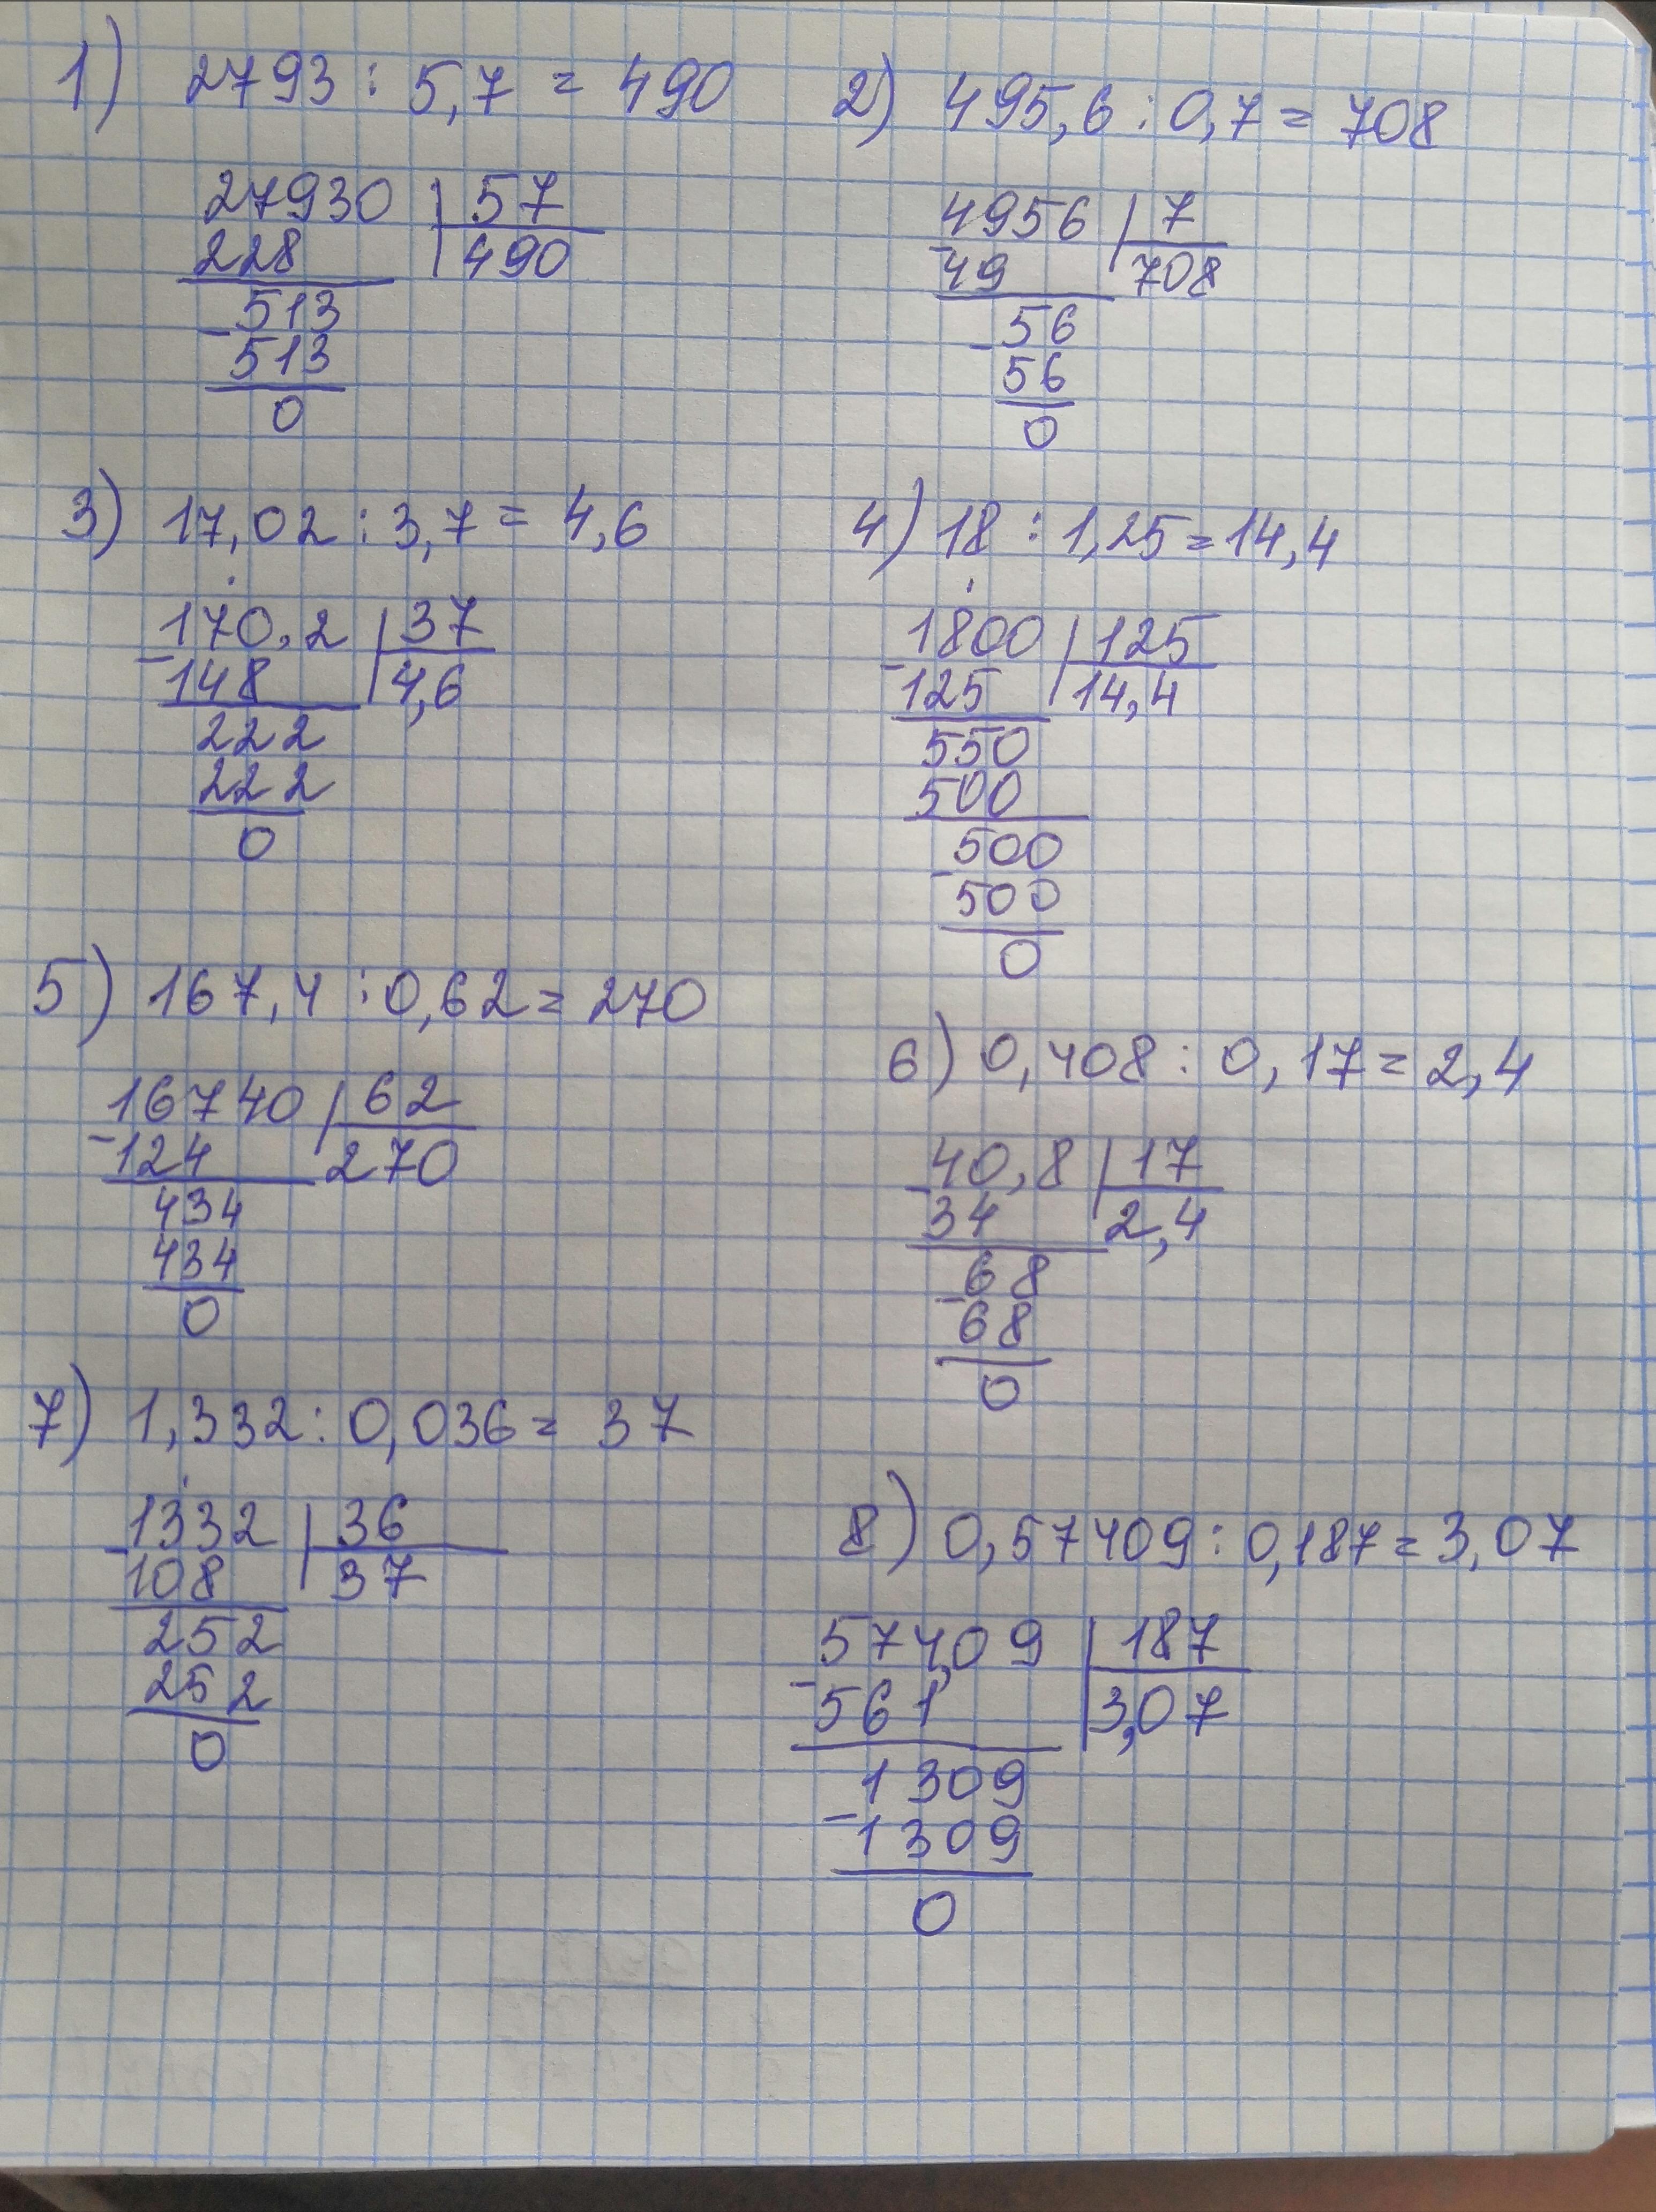 1) 2793 : 5,7 = 490
27930 | 57
228 | 490
- 513
513
0
2) 495,6 : 0,7 = 708
4956 | 7
- 49 | 708
- 56
56
0
3) 17,02 : 3,7 = 4,6
170,2 | 37
- 148 | 4,6
222
222
0
4) 18 : 1,25 = 14,4
1800 | 125
- 125 | 14,4
550
500
- 500
500
0
5) 167,4 : 0,62 = 270
16740 | 62
- 124 | 270
434
434
0
6) 0,408 : 0,17 = 2,4
40,8 | 17
- 34 | 2,4
- 68
68
0
7) 1,332 : 0,036 = 37
1332 | 36
- 108 | 37
252
252
0
8) 0,57409 : 0,187 = 3,07
574,09 | 187
- 561 | 3,07
1309
- 1309
0